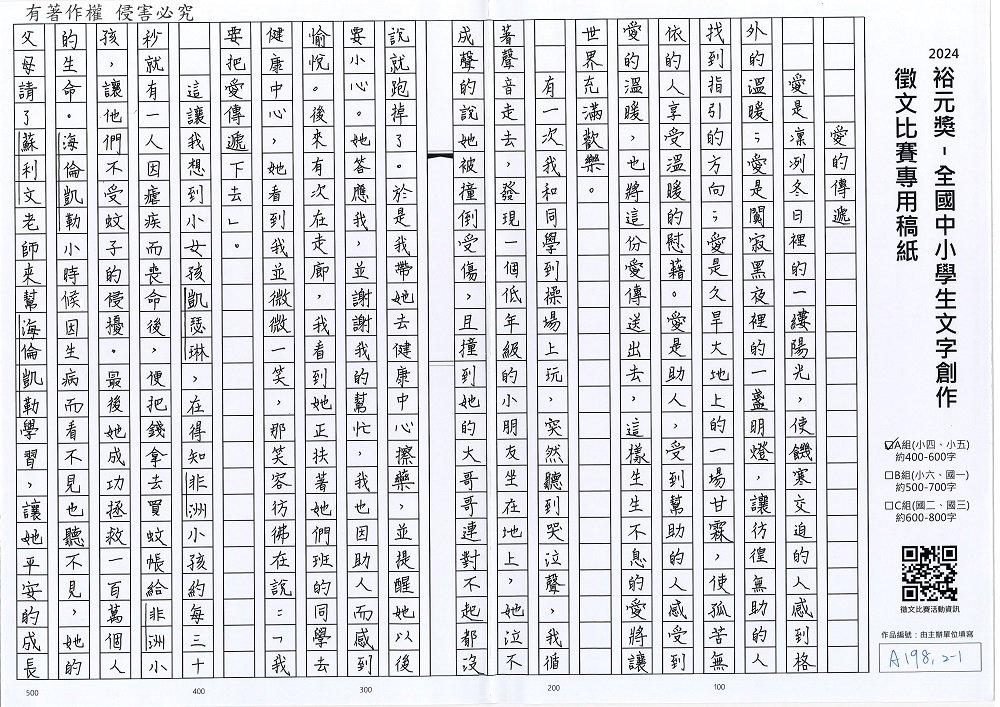 有著作權 侵害必究
2024
裕元獎-全國中小學生文字創作
徵文比賽專用稿紙
☑A組(小四、小五)
約400-600字
□B組(小六、國一)
約500-700字
□C組(國二、國三)
約600-800字
徵文比賽活動資訊
作品編號：由主辦單位填寫
A198,2-1
愛的傳遞
愛是凜冽冬日裡的一縷陽光，使饑寒交迫的人感到格
外的溫暖；愛是闃寂黑夜裡的一盞明燈，讓彷徨無助的人
找到指引的方向；愛是久旱大地上的一場甘霖，使孤苦無
依的人享受溫暖的慰藉。愛是助人，受到幫助的人感受到
愛的溫暖，也將這份愛傳送出去，這樣生生不息的愛將讓
世界充滿歡樂。
有一次我和同學到操場上玩，突然聽到哭泣聲，我循
著聲音走去，發現一個低年級的小朋友坐在地上，她泣不
成聲的說她被撞倒受傷，且撞到她的大哥哥連對不起都沒
說就跑掉了。於是我帶她去健康中心擦藥，並提醒她以後
要小心。她答應我，並謝謝我的幫忙，我也因助人而感到
愉悅。後來有次在走廊，我看到她正扶著她們班的同學去
健康中心，她看到我並微微一笑，那笑容彷彿在說：「我
要把愛傳遞下去」。
這讓我想到小女孩凱瑟琳，在得知非洲小孩約每三十
秒就有一人因瘧疾而喪命後，便把錢拿去買蚊帳給非洲小
孩，讓他們不受蚊子的侵擾。最後她成功拯救一百萬個人
的生命。海倫凱勒小時候因生病而看不見也聽不見，她的
父母請了蘇利文老師來幫海倫凱勒學習，讓她平安的成長
100
200
300
400
500